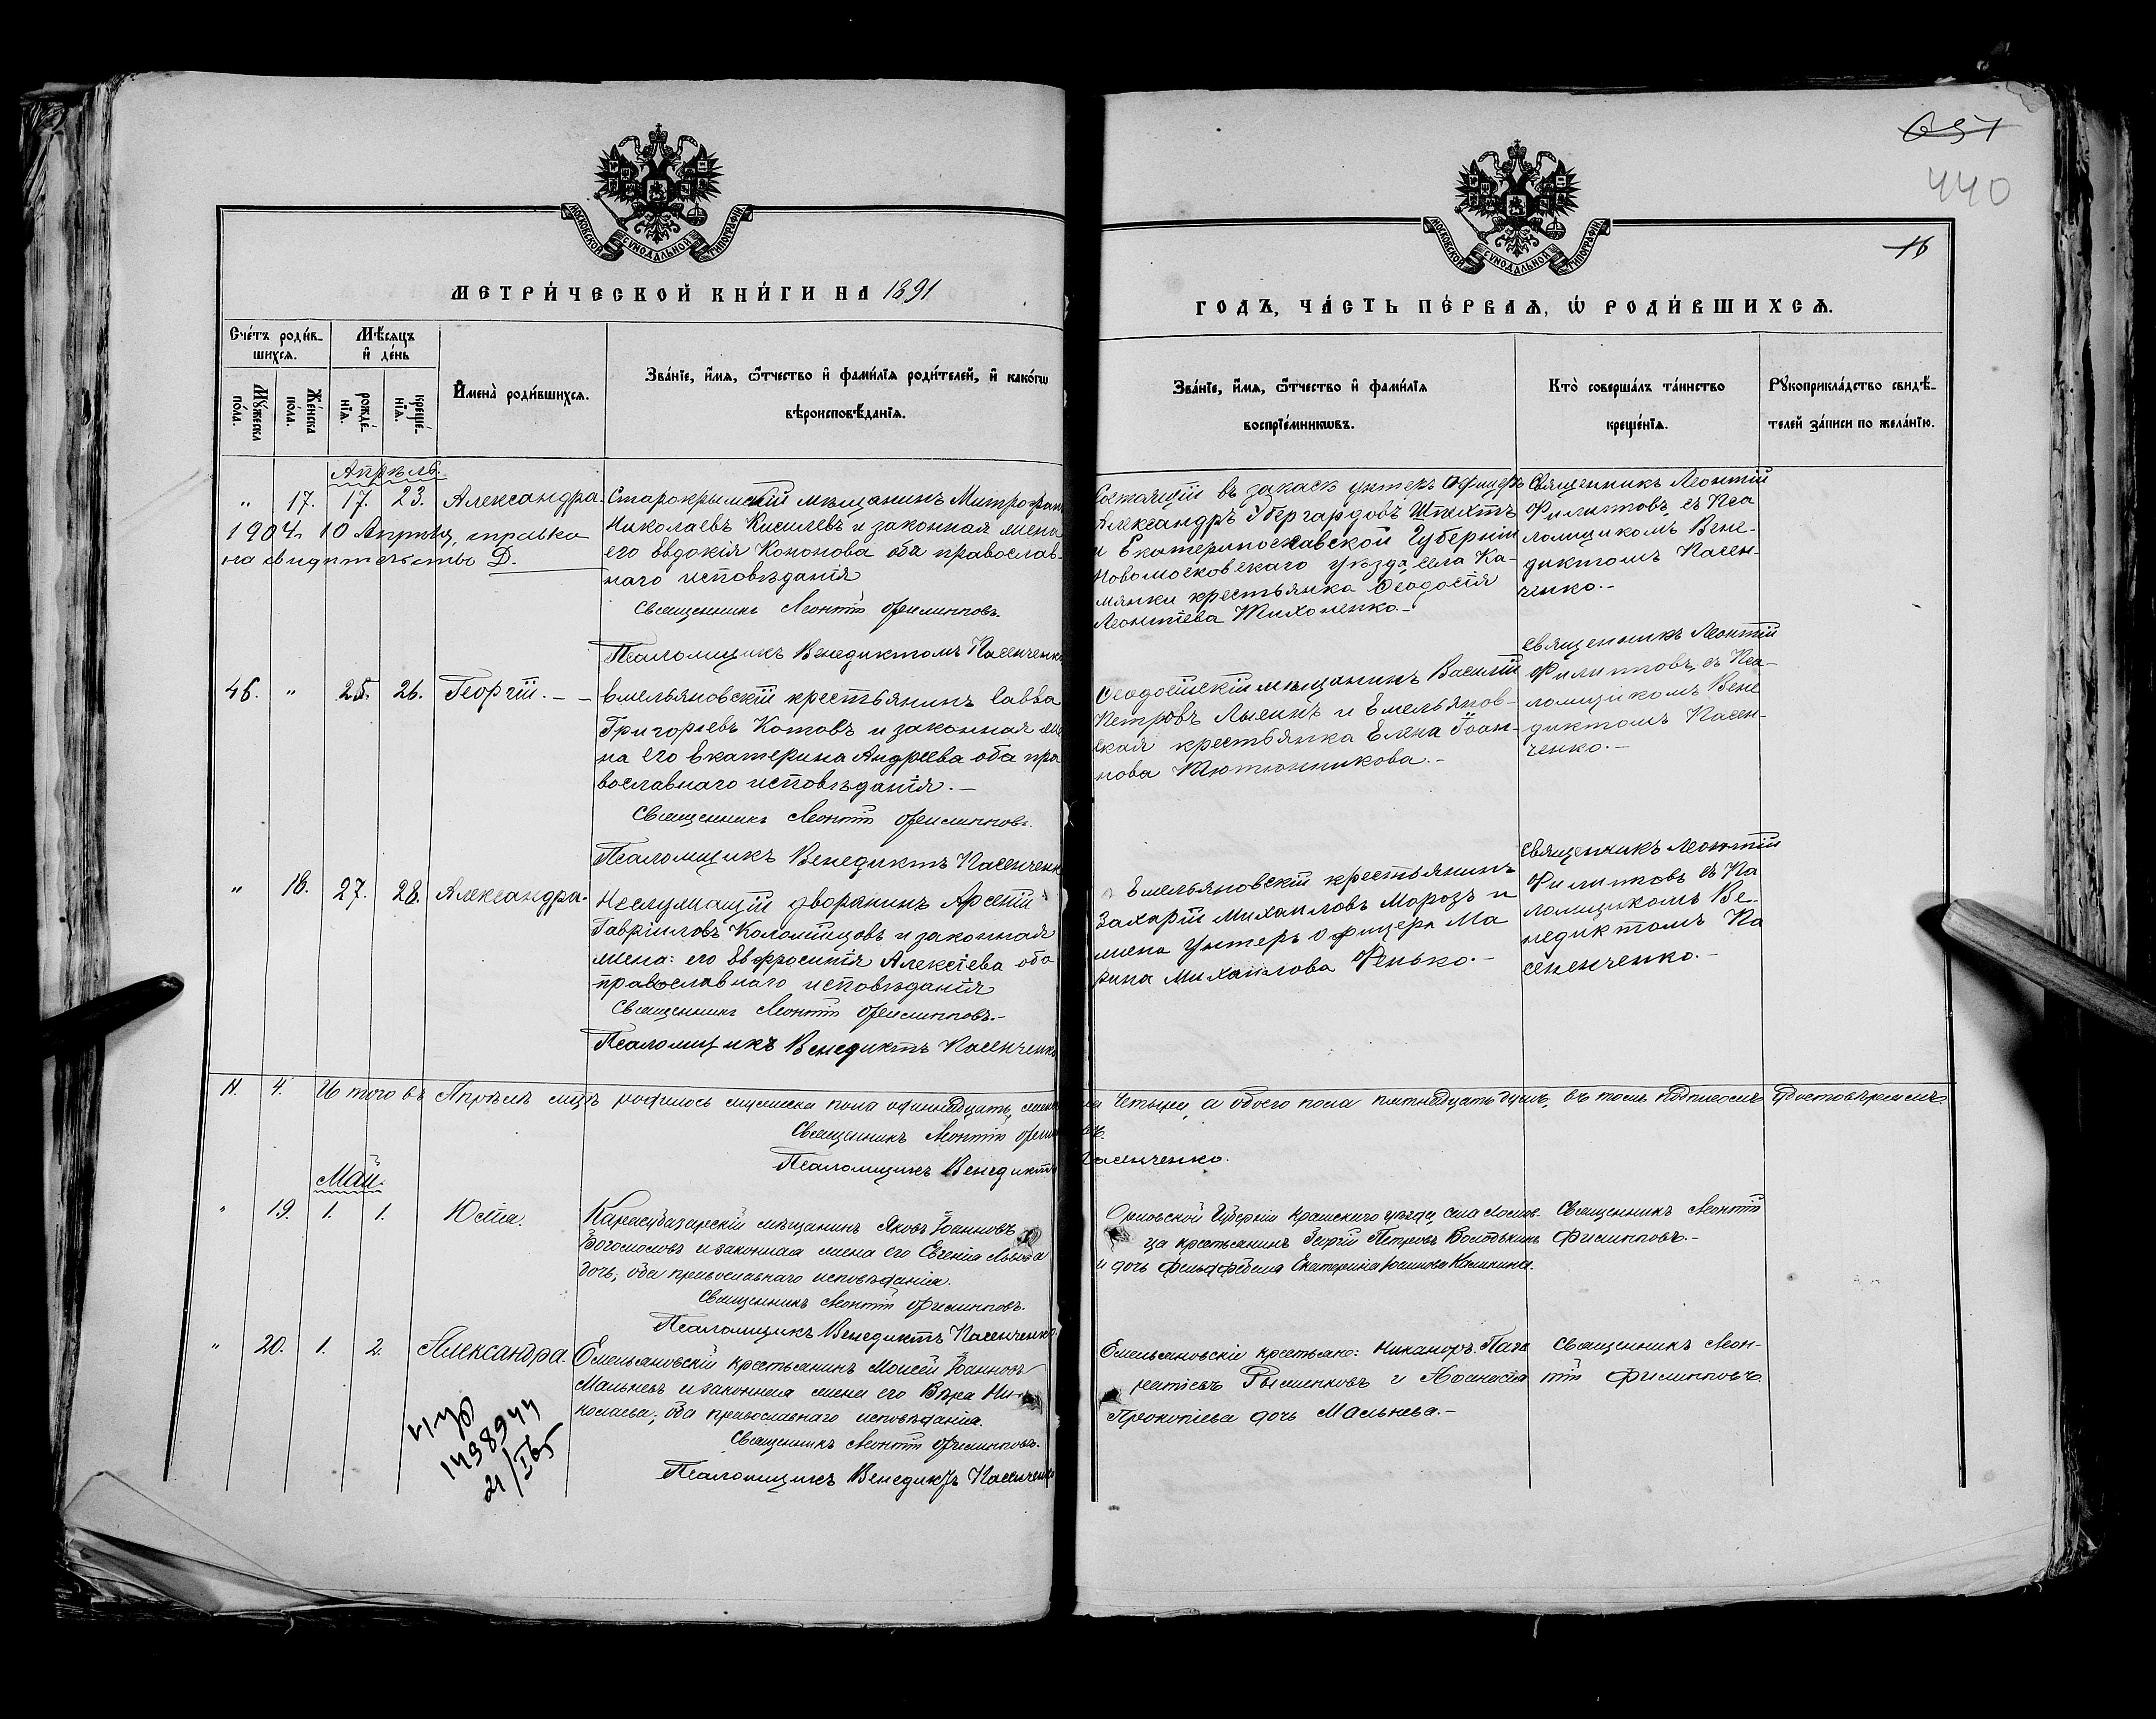 651
440
16
МОСКОВСКОЙ СѴНОДАЛЬНОЙ ТИПОГРАФІИ
МОСКОВСКОЙ СѴНОДАЛЬНОЙ ТИПОГРАФІИ
МЕТРИ́ЧЕСКОЙ КНИ́ГИ НА 1891
ГОДЪ, ЧА́СТЬ ПЕ́РВАѦ, Ѡ҆ РОДИ́ВШИХСѦ.
Сче́тъ роди́в-
шихсѧ.
Мꙋ́жеска
по́ла.
Же́нска
по́ла.
Мѣ́сѧцъ
и҆ де́нь
рожде́-
нїѧ.
креще́-
нїѧ.
И҆мена̀ роди́вшихсѧ.
Зва́нїе, и҆́мѧ, ѻ҆́тчество и҆ фами́лїѧ роди́телей, и҆ како́гѡ
вѣроисповѣ́данїѧ.
Зва́нїе, и҆́мѧ, ѻ҆́тчество и҆ фами́лїѧ
воспрїе́мникѡвъ.
Кто̀ соверша́лъ та́инство
креще́нїѧ.
Рꙋкоприкла́дство свидѣ́-
телей за́писи по жела́нїю.
Апрѣль.
" 17. 17. 23. Александра.
1904 г. 10 Апрѣля, справка
на свидѣтельство Д.
Старокрымскій мѣщанинъ Митрофанъ
Николаевъ Киселевъ и законная жена
его Евдокія Кононова оба православ-
наго исповѣданія
Священникъ Леонтій Филипповъ.
Псаломщикъ Венедиктомъ Пасенченко
Состоящій въ запасѣ унтеръ Офицеръ
Александръ Эбергардовъ Шпихтъ
и Екатеринославской Губерніи
Новомосковскаго уѣзда села Ка-
мянки крестьянка Ѳеодосія
Леонтіева Тихоненко.-
Священникъ Леонтій
Филипповъ, съ Пса
ломщикомъ Вене-
диктомъ Пасен-
ченко.-
46. " 25. 26. Георгій. - -
Емельяновскій крестьянинъ Савва
Григорьевъ Котовъ и законная же
на его Екатерина Андреева оба пра
вославнаго исповѣданія.-
Священникъ Леонтій Филипповъ.
Псаломщикъ Венедиктъ Пасенченко
Ѳеодосійскій мѣщанинъ Василій
Петровъ Лыжинъ и Емельянов-
ская крестьянка Елена Іоан-
нова Тютюнникова.-
Священникъ Леонтій
Филипповъ, съ Пса-
ломщикомъ Вене
диктомъ Пасен-
ченко.-
" 18. 27. 28. Александра.
Неслужащій дворянинъ Арсеній
Гавріиловъ Коломійцовъ и законная
жена: его Евфросинія Алексіева оба
православнаго исповѣданія
Священникъ Леонтій Филипповъ.-
Псаломщикъ Венедиктъ Пасенченко
Емельяновскій крестьянинъ
Захарій Михаиловъ Морозъ и
жена унтеръ офицера Ма
рина Михайлова Фенько.-
Священникъ Леонтій
Филипповъ съ Пса
ломщикомъ Ве-
недиктомъ Па
сененченко.-
11. 4. Итого въ Апрѣлѣ мцѣ родилось мужеска пола одиннадцать, женска четыре, а обоего пола пятнадцать душъ, въ томъ подписомъ удостовѣряемъ.
Священникъ Леонтій Филипповъ.
Псаломщикъ Венедиктъ Пасенченко.
Май.
" 19. 1. 1. Юлія.
Карасубазарскій мѣщанинъ Яковъ Іоанновъ
Богомоловъ и законная жена его Евгенія Львова
дочь, оба православнаго исповѣданія.
Священникъ Леонтій Филипповъ.
Псаломщикъ Венедиктъ Пасенченко.
Орловской Губерніи Крамскаго уѣзда, села
ца крестьянинъ Георгій Петровъ Болтонкинъ
и дочь фельдфебеля Екатерина Іоаннова Калинкина.
Священникъ Леонтій
Филипповъ.-
" 20. 1. 2. Александра.
Емельяновскій крестьянинъ Моисей Іоанновъ
Мальневъ и законная жена его Вѣра Ни-
колаева, оба православнаго исповѣданія.
Священникъ Леонтій Филипповъ.
Псаломщикъ Венедиктъ Пасенченко
Емельяновскіе крестьяне: Никаноръ
Рыженковъ и Аѳанасія
Прокопіева дочь Мальнева.-
Священникъ Леон-
тій Филипповъ.
1498944